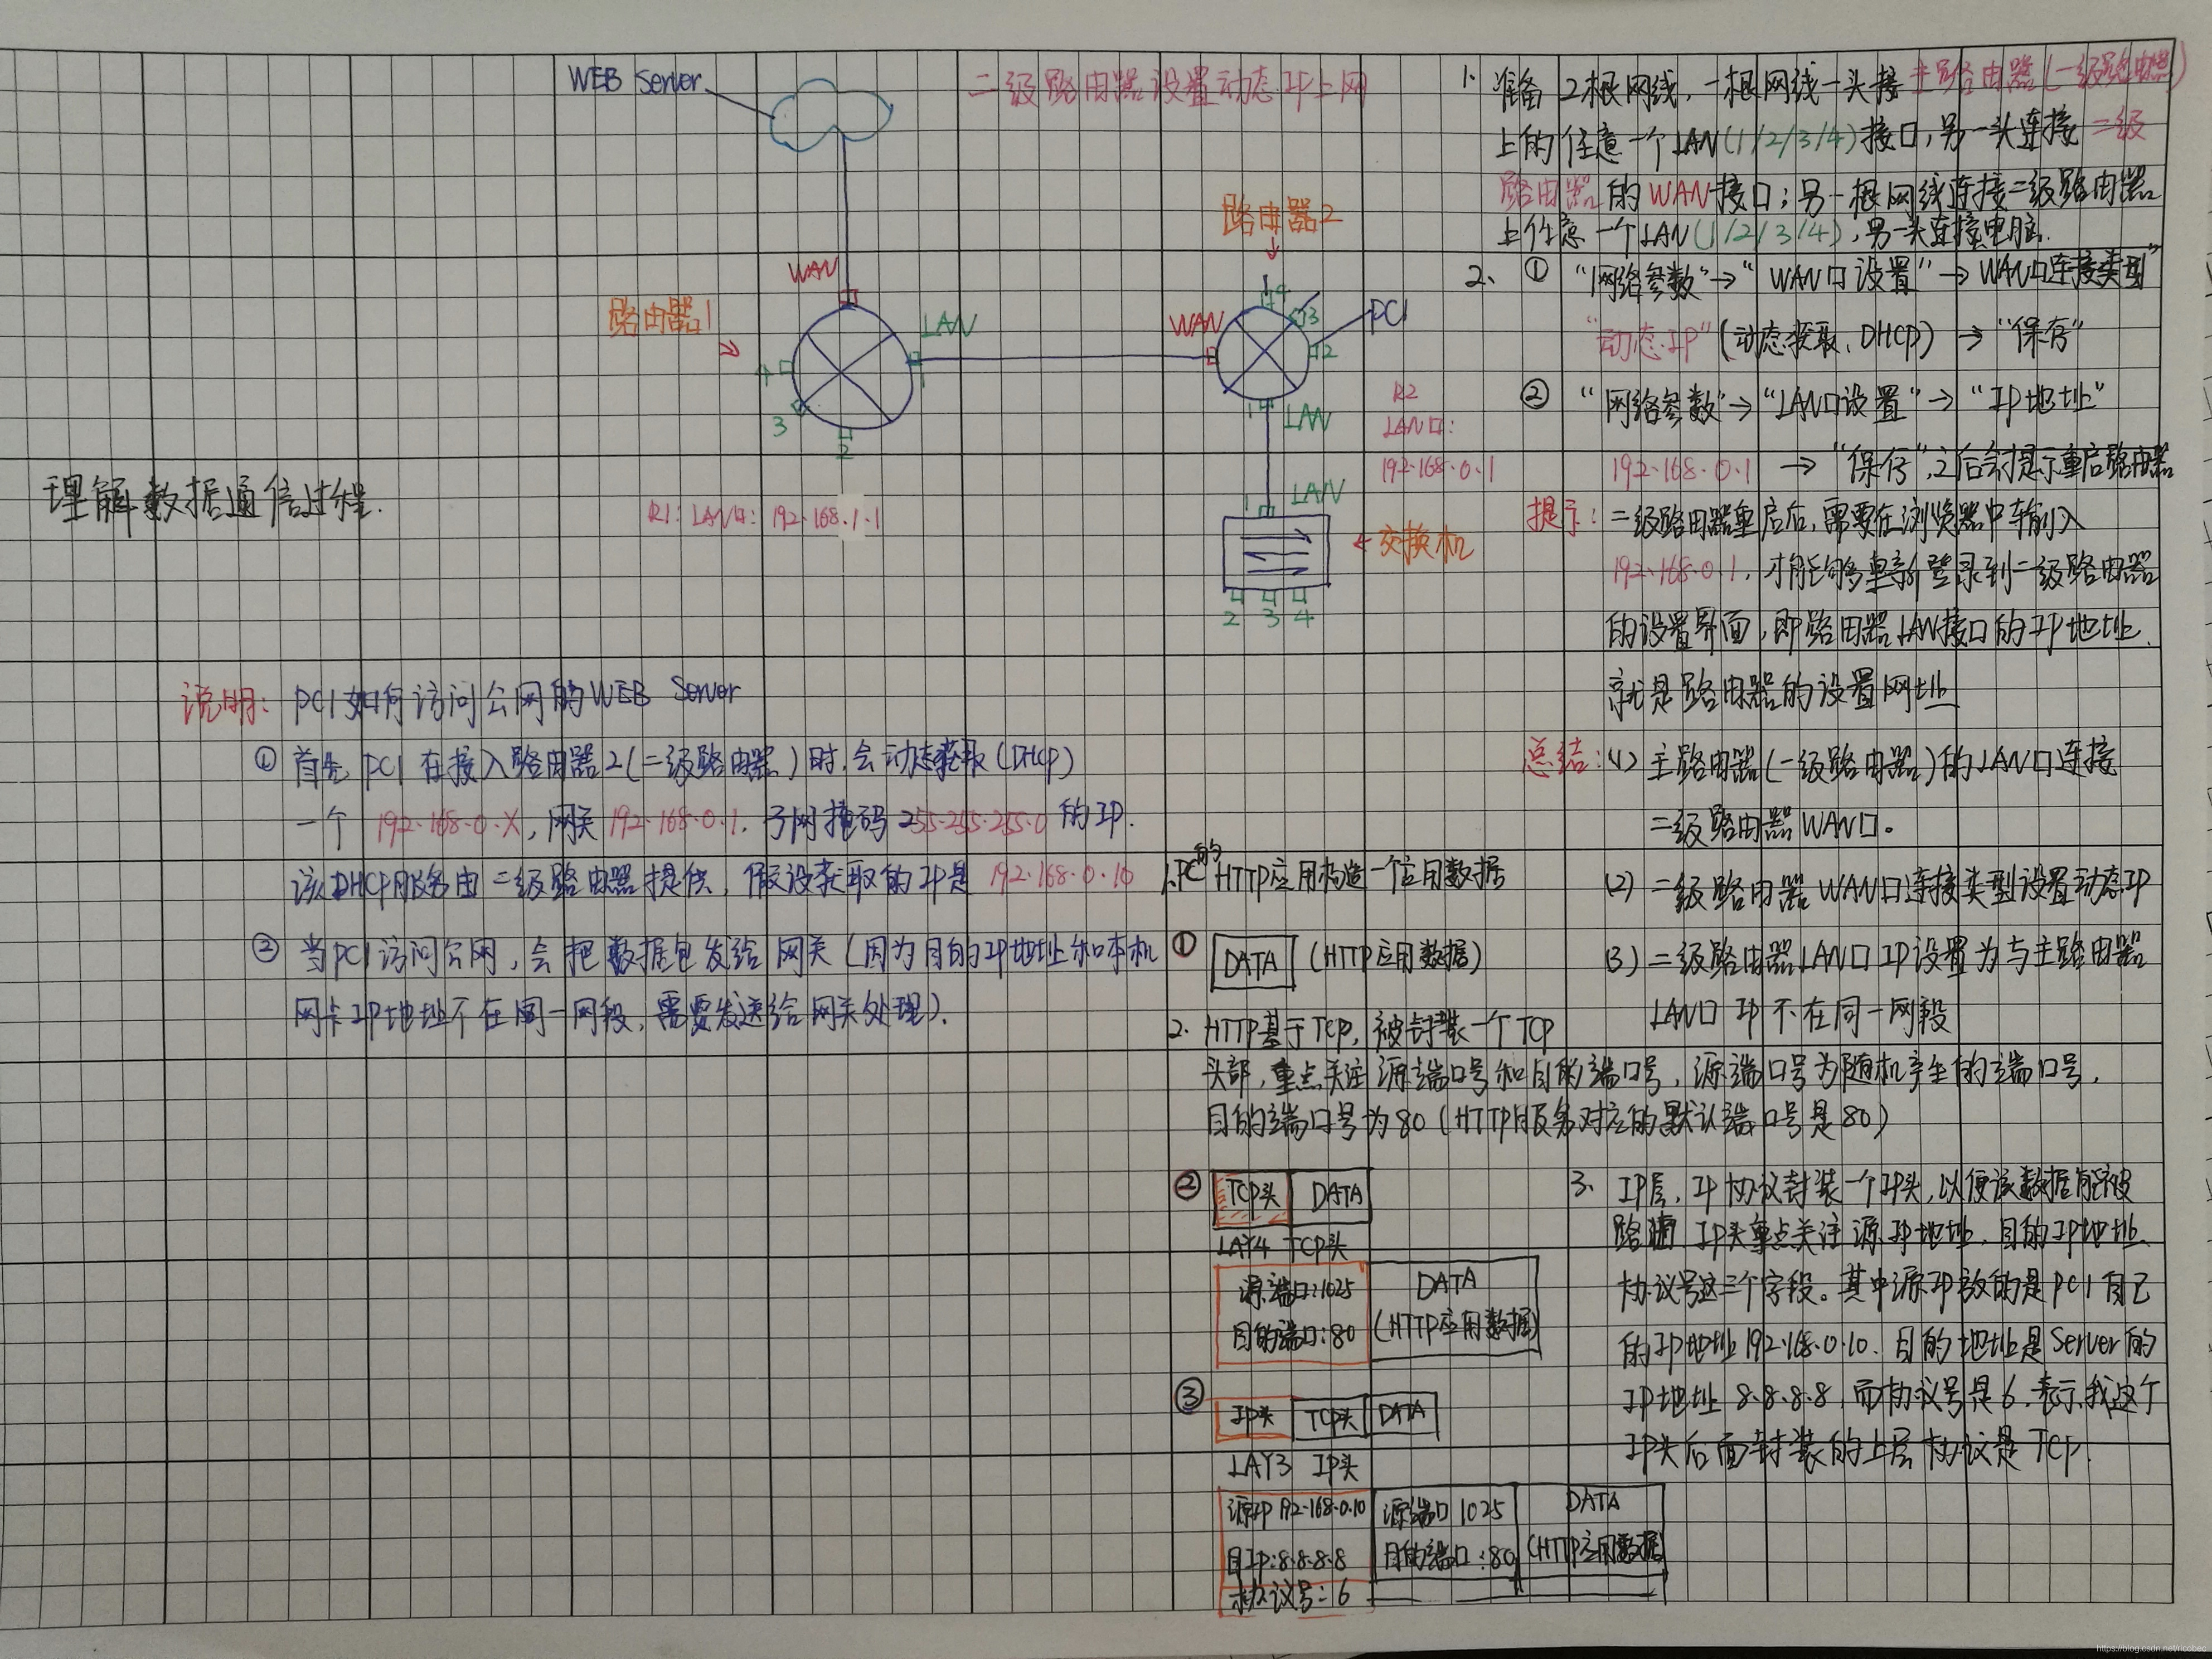 WEB Server
二级路由器设置动态IP上网
路由器2
WAN
路由器1
LAN
1
4
3
2
WAN
4
3
2
PC1
1
LAN
R2
LAN口:
192.168.0.1
LAN
1
交换机
2 3 4
R1: LAN口: 192.168.1.1
理解数据通信过程.
1. 准备2根网线，一根网线一头接主路由器(一级路由器)
上的任意一个LAN(1/2/3/4)接口，另一头连接二级
路由器的WAN接口；另一根网线连接二级路由器
上任意一个LAN(1/2/3/4)，另一头连接电脑.
2、① "网络参数"→"WAN口设置"→WAN口连接类型"
"动态IP"(动态获取、DHCP)→"保存"
② "网络参数"→"LAN口设置"→"IP地址"
192.168.0.1 →"保存",之后会提示重启路由器
提示: 二级路由器重启后，需要在浏览器中输入
192.168.0.1，才能够重新登录到二级路由器
的设置界面，即路由器LAN接口的IP地址.
就是路由器的设置网址
总结:(1)主路由器(一级路由器)的LAN口连接
二级路由器WAN口。
(2)二级路由器WAN口连接类型设置动态IP
(3)二级路由器LAN口IP设置为与主路由器
LAN口IP不在同一网段
说明: PC1如何访问公网的WEB Server
① 首先PC1在接入路由器2(二级路由器)时.会动态获取(DHCP)
一个 192.168.0.X，网关192.168.0.1.子网掩码255.255.255.0的IP.
该DHCP服务由二级路由器提供，假设获取的IP是 192.168.0.10
② 当PC1访问公网，会把数据包发给网关(因为目的IP地址和本机
网卡IP地址不在同一网段，需要发送给网关处理).
1.PC的HTTP应用构造一个应用数据
① DATA (HTTP应用数据)
2. HTTP基于TCP，被封装一个TCP
头部，重点关注源端口号和目的端口号，源端口号为随机产生的端口号，
目的端口号为80(HTTP服务对应的默认端口号是80)
② TCP头 DATA
LAY4 TCP头
源端口:1025
目的端口:80
DATA
(HTTP应用数据)
③ IP头 TCP头 DATA
LAY3 IP头
源IP 192.168.0.10
目IP:8.8.8.8
协议号:6
源端口 1025
目的端口:80
DATA
(HTTP应用数据)
3. IP层，IP协议封装一个IP头，以便该数据能够被
路由 IP头重点关注源IP地址，目的IP地址.
协议号这三个字段。其中源IP放的是PC1自己
的IP地址192.168.0.10.目的地址是Server的
IP地址 8.8.8.8，而协议号是6.表示我这个
IP头后面封装的上层协议是TCP.
https://blog.csdn.net/ricobec